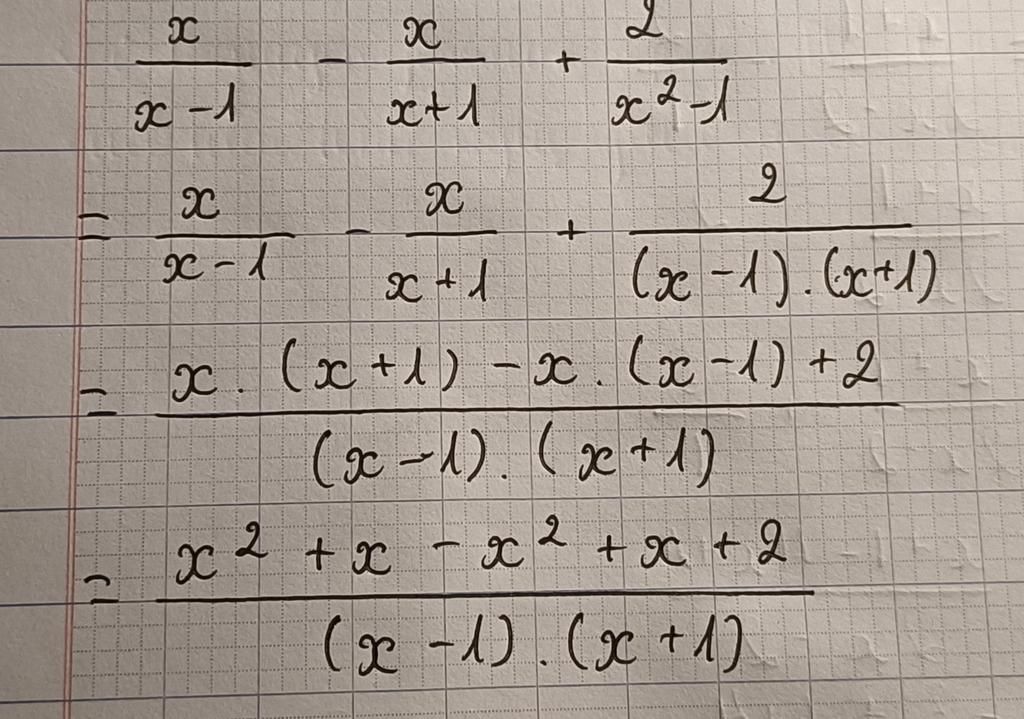 x/(x-1) - x/(x+1) + 2/(x²-1)
= x/(x-1) - x/(x+1) + 2/((x-1).(x+1))
= (x.(x+1)-x.(x-1)+2)/((x-1).(x+1))
= (x²+x-x²+x+2)/((x-1).(x+1))